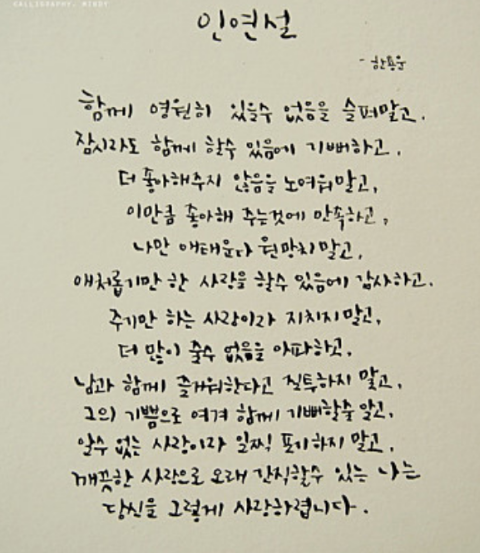 CALLIGRAPHY. MINDY
인연설
- 한용운
함께 영원히 있을수 없음을 슬퍼말고.
잠시라도 함께 할수 있음에 기뻐하고.
더 좋아해주지 않음을 노여워말고,
이만큼 좋아해 주는것에 만족하고,
나만 애태운다 원망치말고,
애처롭기만 한 사랑을 할수 있음에 감사하고.
주기만 하는 사랑이라 지치지말고,
더 많이 줄수 없음을 아파하고,
남과 함께 즐거워한다고 질투하지 말고,
그의 기쁨으로 여겨 함께 기뻐할줄 알고,
알수 없는 사랑이라 일찍 포기하지 말고,
깨끗한 사랑으로 오래 간직할수 있는 나는
당신을 그렇게 사랑하렵니다.